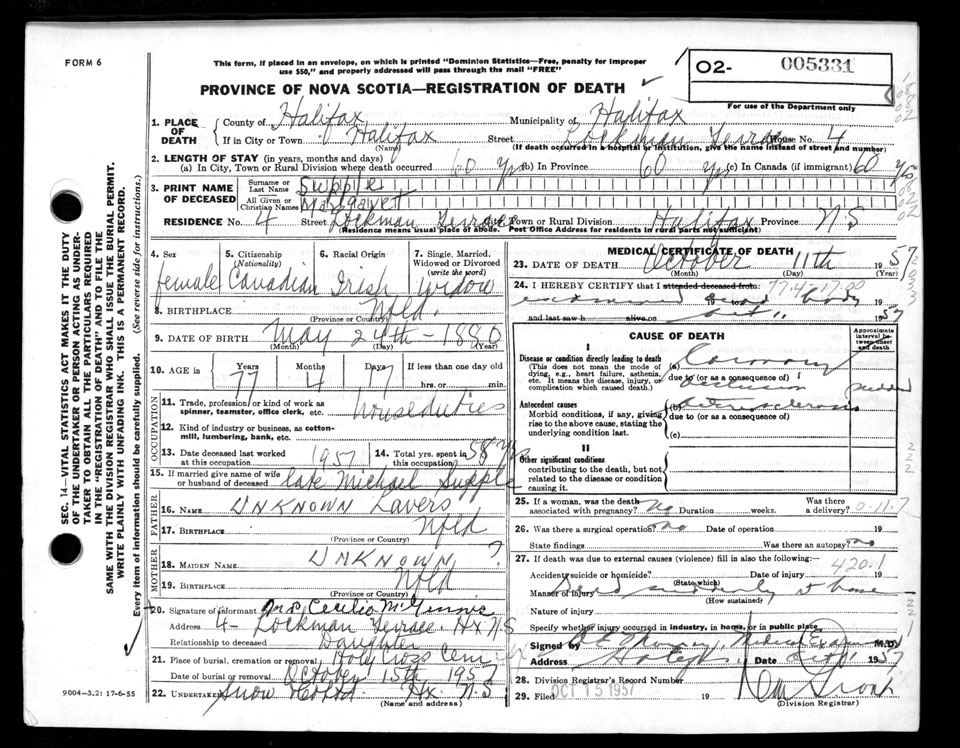 FORM 6
This form, if placed in an envelope, on which is printed "Dominion Statistics—Free, penalty for improper
use $50," and properly addressed will pass through the mail "FREE"
O2- 005331
For use of the Department only
PROVINCE OF NOVA SCOTIA—REGISTRATION OF DEATH
1. PLACE OF DEATH County of Halifax Municipality of Halifax
If in City or Town Halifax (Name) Street Lockman Terrace House No. 4
(If death occurred in a hospital or institution, give the name instead of street and number)
2. LENGTH OF STAY (in years, months and days)
(a) In City, Town or Rural Division where death occurred 60 yrs (b) In Province 60 yrs (c) In Canada (if immigrant) 60 yrs
3. PRINT NAME OF DECEASED Surname or Last Name Supple
All Given or Christian Names Margaret
RESIDENCE No. 4 Street Lockman Terrace City, Town or Rural Division Halifax Province N.S
(Residence means usual place of abode. Post Office Address for residents in rural parts not sufficient)
4. Sex female
5. Citizenship (Nationality) Canadian
6. Racial Origin Irish
7. Single, Married, Widowed or Divorced (write the word) widow
8. BIRTHPLACE Nfld.
(Province or Country)
9. DATE OF BIRTH May 24th - 1880
(Month) (Day) (Year)
10. AGE in Years 77 Months 4 Days 17 If less than one day old
hrs. or min.
OCCUPATION
11. Trade, profession or kind of work as spinner, teamster, office clerk, etc. house duties
12. Kind of industry or business, as cotton-mill, lumbering, bank, etc.
13. Date deceased last worked at this occupation 1957 14. Total yrs. spent in this occupation 58 yrs
15. If married give name of wife or husband of deceased late Michael Supple
FATHER
16. NAME UNKNOWN Lavers
17. BIRTHPLACE Nfld
(Province or Country)
MOTHER
18. MAIDEN NAME UNKNOWN ?
19. BIRTHPLACE Nfld
(Province or Country)
20. Signature of informant Mrs Cecelia McGinnis
Address 4- Lockman Terrace Hx N.S
Relationship to deceased Daughter
21. Place of burial, cremation or removal Holy Cross Cem
Date of burial or removal October 15th 1957
22. Undertaker Snow Hx N.S
(Name and address)
MEDICAL CERTIFICATE OF DEATH
23. DATE OF DEATH October 11th 1957
(Month) (Day) (Year)
24. I HEREBY CERTIFY that I attended deceased from:
examined dead body
and last saw h alive on Oct 11 1957
CAUSE OF DEATH
Approximate interval between onset and death
I
Disease or condition directly leading to death
(This does not mean the mode of dying, e.g., heart failure, asthenia, etc. It means the disease, injury, or complication which caused death.)
(a) Coronary
due to (or as a consequence of) occlusion sudden
Antecedent causes
Morbid conditions, if any, giving rise to the above cause, stating the underlying condition last.
(b) Arteriosclerosis
due to (or as a consequence of)
(c)
II
Other significant conditions
contributing to the death, but not related to the disease or condition causing it.
25. If a woman, was the death associated with pregnancy? No Duration weeks. Was there a delivery?
26. Was there a surgical operation? no Date of operation 19
State findings Was there an autopsy? no
27. If death was due to external causes (violence) fill in also the following:—
420.1
Accident, suicide or homicide? (State which) Date of injury 19
Manner of injury Died suddenly at home
(How sustained)
Nature of injury
Specify whether injury occurred in industry, in home, or in public place
Signed by Medical Examiner M.D.
Address Halifax Date Oct 11 1957
28. Division Registrar's Record Number
29. Filed OCT 15 1957 19
(Division Registrar)
9004-3.2: 17-6-55
SEC. 14—VITAL STATISTICS ACT MAKES IT THE DUTY
OF THE UNDERTAKER OR PERSON ACTING AS UNDER-
TAKER TO OBTAIN ALL THE PARTICULARS REQUIRED
IN THE "REGISTRATION OF DEATH" AND TO FILE THE
SAME WITH THE DIVISION REGISTRAR WHO SHALL ISSUE THE BURIAL PERMIT.
WRITE PLAINLY WITH UNFADING INK. THIS IS A PERMANENT RECORD.
Every item of information should be carefully supplied. (See reverse side for instructions.)